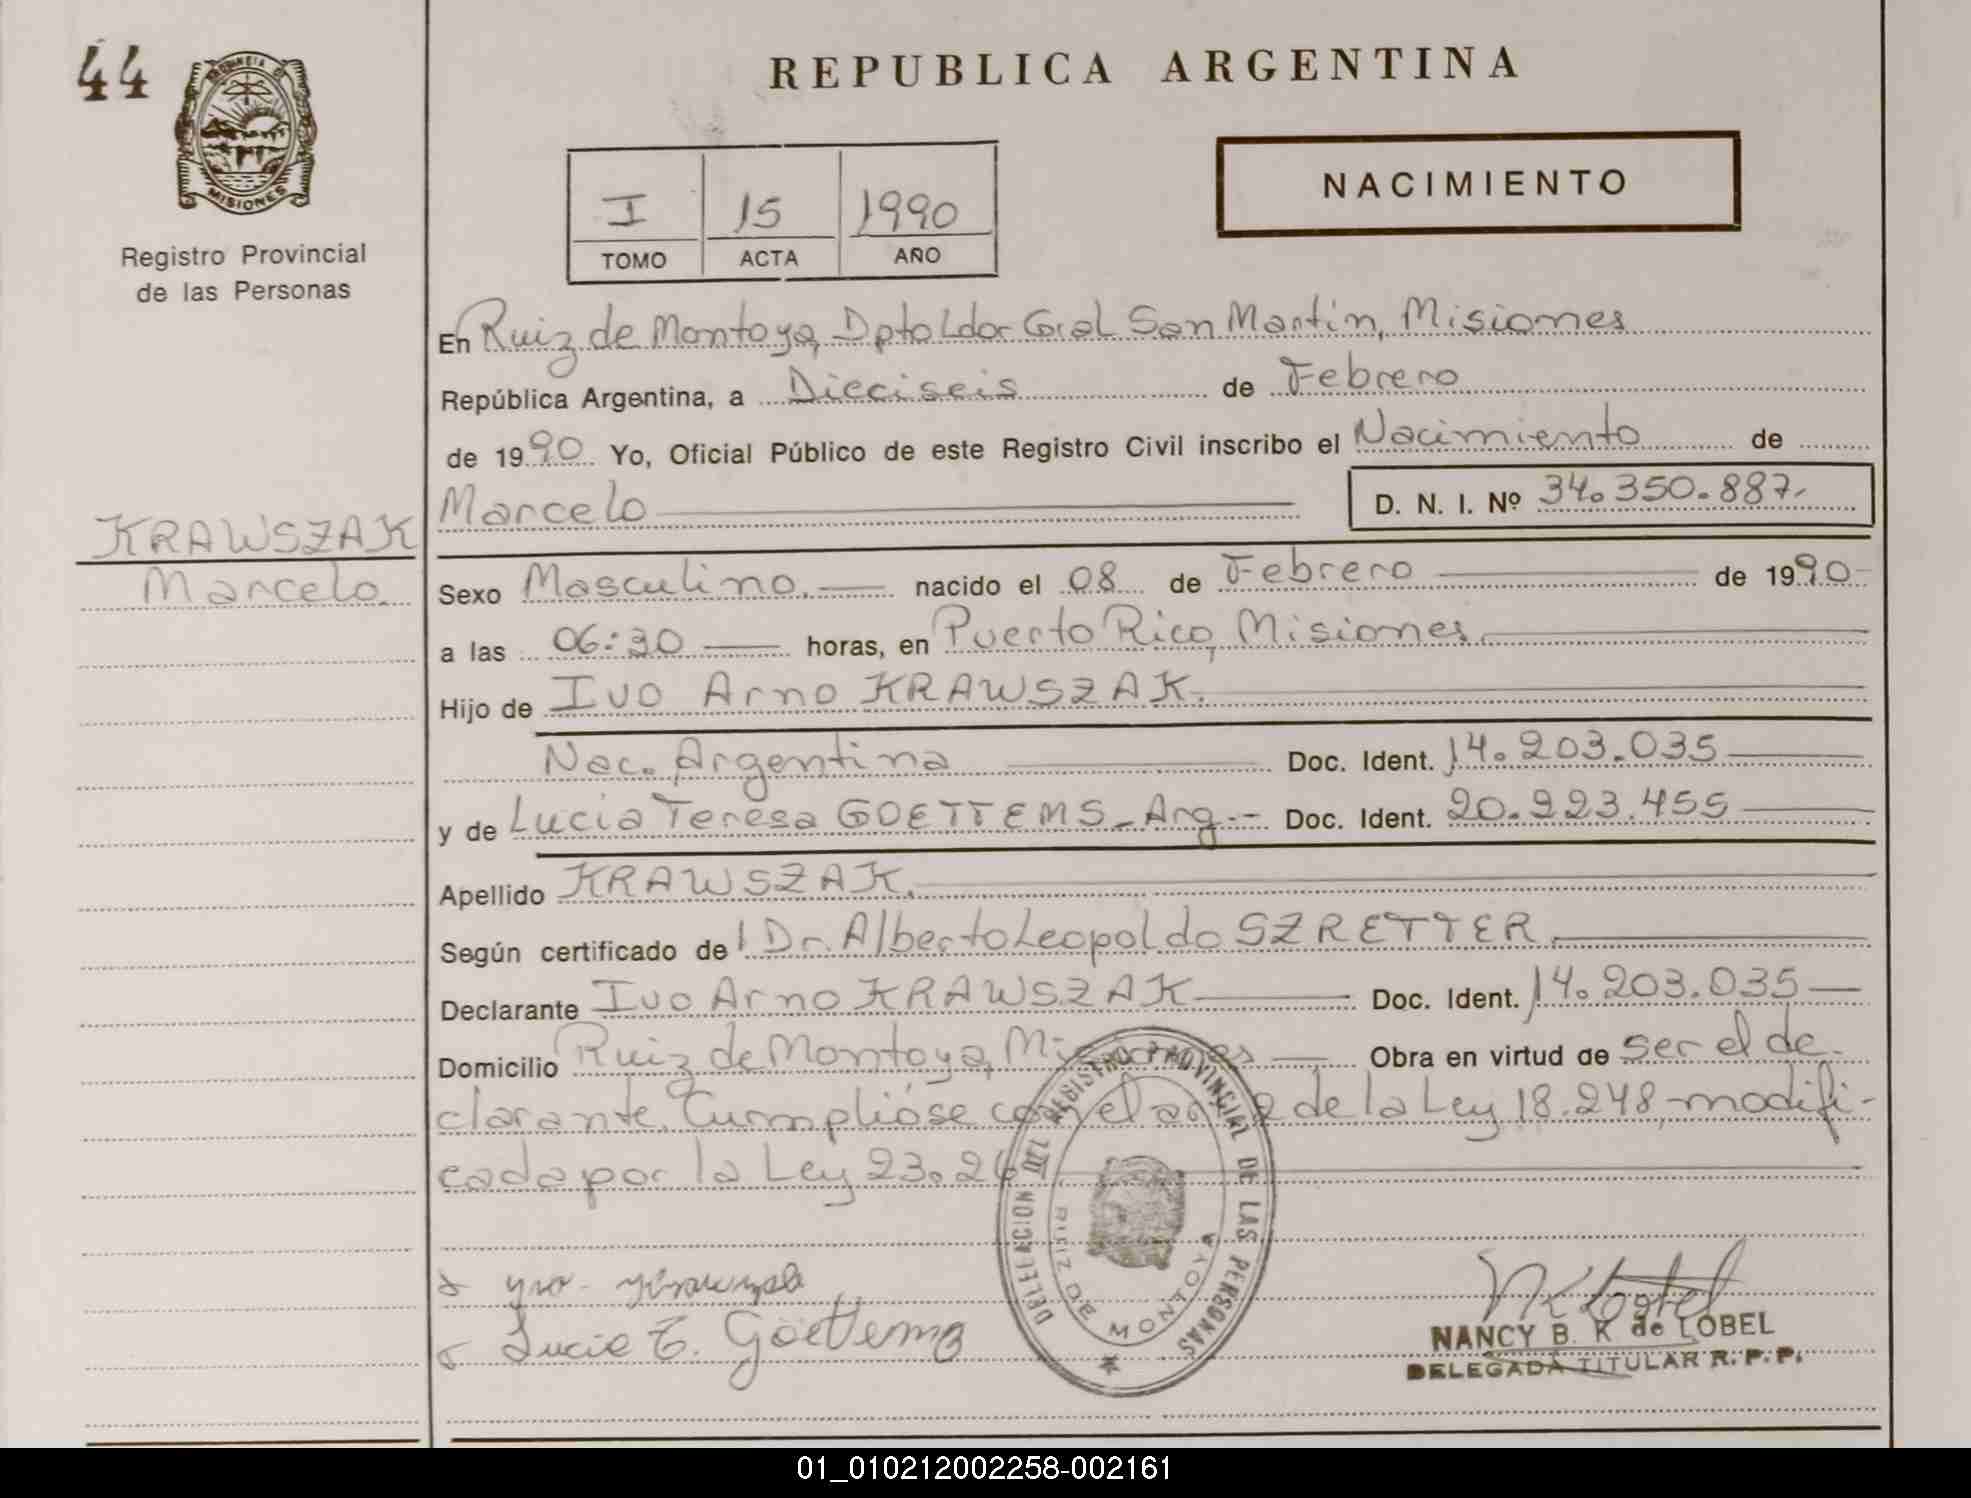 44
REPUBLICA ARGENTINA
MISIONES
Registro Provincial
de las Personas
I 15 1990
TOMO ACTA AÑO
NACIMIENTO
En Ruiz de Montoya, Dpto Ldor Gral San Martín, Misiones
República Argentina, a Dieciseis de Febrero
de 1990 Yo, Oficial Público de este Registro Civil inscribo el Nacimiento de
Marcelo D. N. I. Nº 34.350.887.
KRAWSZAK
Marcelo
Sexo Masculino. nacido el 08 de Febrero de 1990
a las 06:30 horas, en Puerto Rico, Misiones.
Hijo de Ivo Arno KRAWSZAK.
Nac. Argentina Doc. Ident. 14.203.035
y de Lucia Teresa GOETTEMS - Arg.- Doc. Ident. 20.223.455
Apellido KRAWSZAK.
Según certificado de Dr. Alberto Leopoldo SZRETTER.
Declarante Ivo Arno KRAWSZAK Doc. Ident. 14.203.035
Domicilio Ruiz de Montoya, Misiones Obra en virtud de ser el de-
clarante. Cumplióse con el de la Ley 18.248, modifi-
cada por la Ley
DELEGACION DEL REGISTRO PROVINCIAL DE LAS PERSONAS
RUIZ DE MONTOYA
Lucia T. Goettems
NANCY B. K de LOBEL
DELEGADA TITULAR R. P. P.
01_010212002258-002161